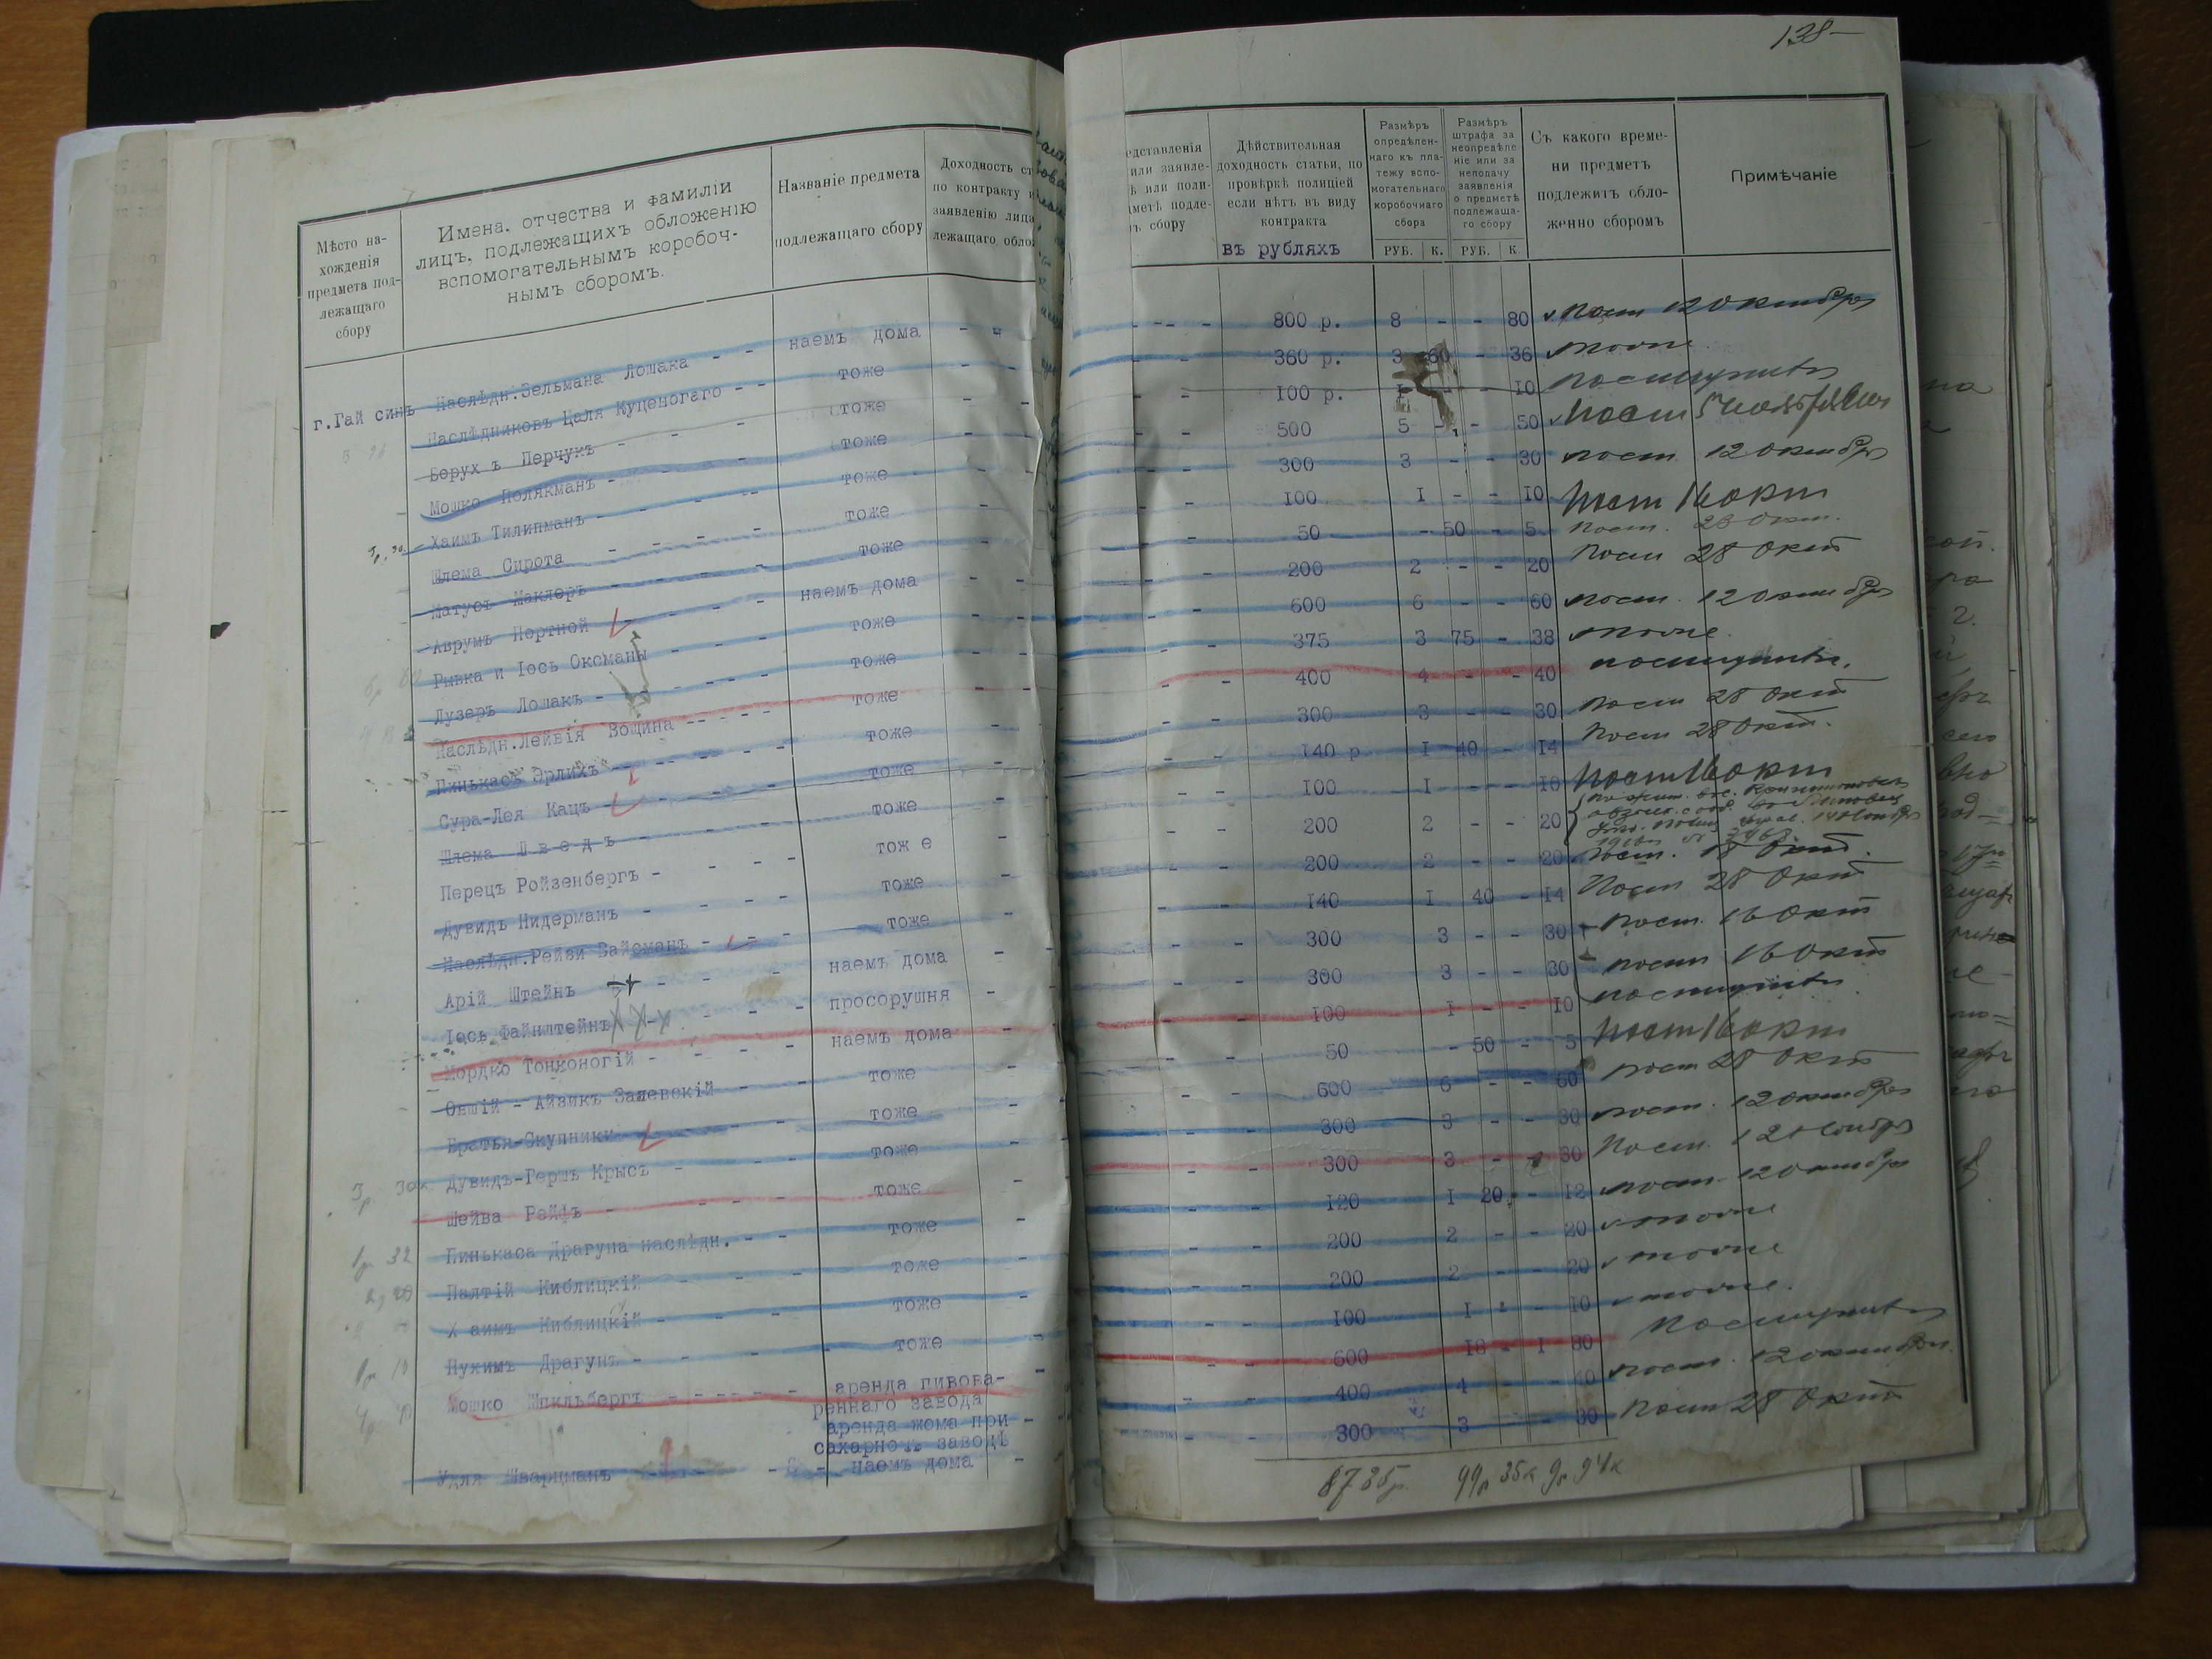 138—
Мѣсто на-
хожденія
предмета под-
лежащаго
сбору
Имена, отчества и фамиліи
лицъ, подлежащихъ обложенію
вспомогательнымъ коробоч-
нымъ сборомъ.
Названіе предмета
подлежащаго сбору
Доходность ст
по контракту и
заявленію лица
лежащаго обло
г.Гай синъ
Наслѣдн.Зельмана Лошака - - наемъ дома - -
Наслѣдниковъ Цаля Куценогаго - - тоже
Борухъ Перчукъ - - - тоже
Мошко Полякманъ - - - тоже
Хаимъ Тилипманъ - - - тоже
Шлема Сирота - - - - тоже
Матусъ Маклеръ - - - - тоже
Аврумъ Портной - - - наемъ дома
Рывка и Іось Оксманы - - - тоже
Лузеръ Лошакъ - - - - тоже
Наслѣдн.Лейвія Вощина - - - - тоже
Пинькасъ Эрлихъ - - - - тоже
Сура-Лея Кацъ - - - - тоже
Шлема Шведъ - - - - тоже
Перецъ Ройзенбергъ - - - - тож е
Дувидъ Нидерманъ - - - - тоже
Наслѣдн.Рейзи Вайсманъ - - - тоже
Арій Штейнъ - - - наемъ дома
Іось Файнштейнъ - - - просорушня
Мордко Тонконогій - - - - наемъ дома
Овшій - Айзикъ Залевскій - - тоже
Братья-Скупники - - - тоже
Дувидъ-Гершъ Крысъ - - - тоже
Шейва Райфъ - - - - тоже
Пинькаса Драгуна наслѣдн. - - тоже
Палтій Киблицкій - - - тоже
Х аимъ Киблицкій - - - - тоже
Нухимъ Драгунъ - - - - тоже
Мошко Шпильбергъ - - - - - - аренда пивова-
реннаго завода
аренда жома при
сахарномъ заводѣ
Удля Шварцманъ - - наемъ дома
едставленія
или заявле-
ѣ или поли-
дметѣ подле-
ъ сбору
Дѣйствительная
доходность статьи, по
провѣркѣ полиціей
если нѣтъ въ виду
контракта
въ рубляхъ
Размѣръ
опредѣлен-
наго къ пла-
тежу вспо-
могательнаго
коробочнаго
сбора
РУБ. К.
Размѣръ
штрафа за
неопредѣле
ніе или за
неподачу
заявленія
о предметѣ
подлежаща-
го сбору
РУБ. К.
Съ какого време-
ни предметъ
подлежитъ обло-
женно сборомъ
Примѣчаніе
800 р. 8 - - 80 Пост 12 Октября
360 р. 3 60 - 36 тоже
100 р. 1 - - 10 поступить
500 5 - - 50 Пост 5 Ноября
300 3 - - 30 пост. 12 октября
100 1 - - 10 Пост 16 окт
50 - 50 - 5 Пост. 28 Окт.
200 2 - - 20 Пост 28 Окт
600 6 - - 60 пост. 12 Октября
375 3 75 - 38 тоже
400 4 - - 40 поступить.
300 3 - - 30 Пост 28 Окт
140 р 1 40 - 14 Пост 28 Окт.
100 1 - - 10 Пост 16 окт
200 2 - - 20
200 2 - - 20 Пост. 18 Окт.
140 1 40 - 14 Пост 28 Окт
300 3 - - 30 Пост. 16 Окт
300 3 - - 30 пост 16 Окт
100 1 - - 10 поступить
50 - 50 - 5 Пост 16 окт
600 6 - - 60 пост 28 Окт
300 3 - - 30 пост. 12 октября
300 3 - - 30 Пост. 12 Ноября
120 1 20 - 12 пост. 12 Октября
200 2 - - 20 тоже
200 2 - - 20 тоже
100 1 - - 10 тоже.
600 18 - 1 80 Поступить
400 4 - - 40 пост. 12 октября.
300 3 - 30 Пост 28 Окт
8735р. 99р 35к 9р 94к